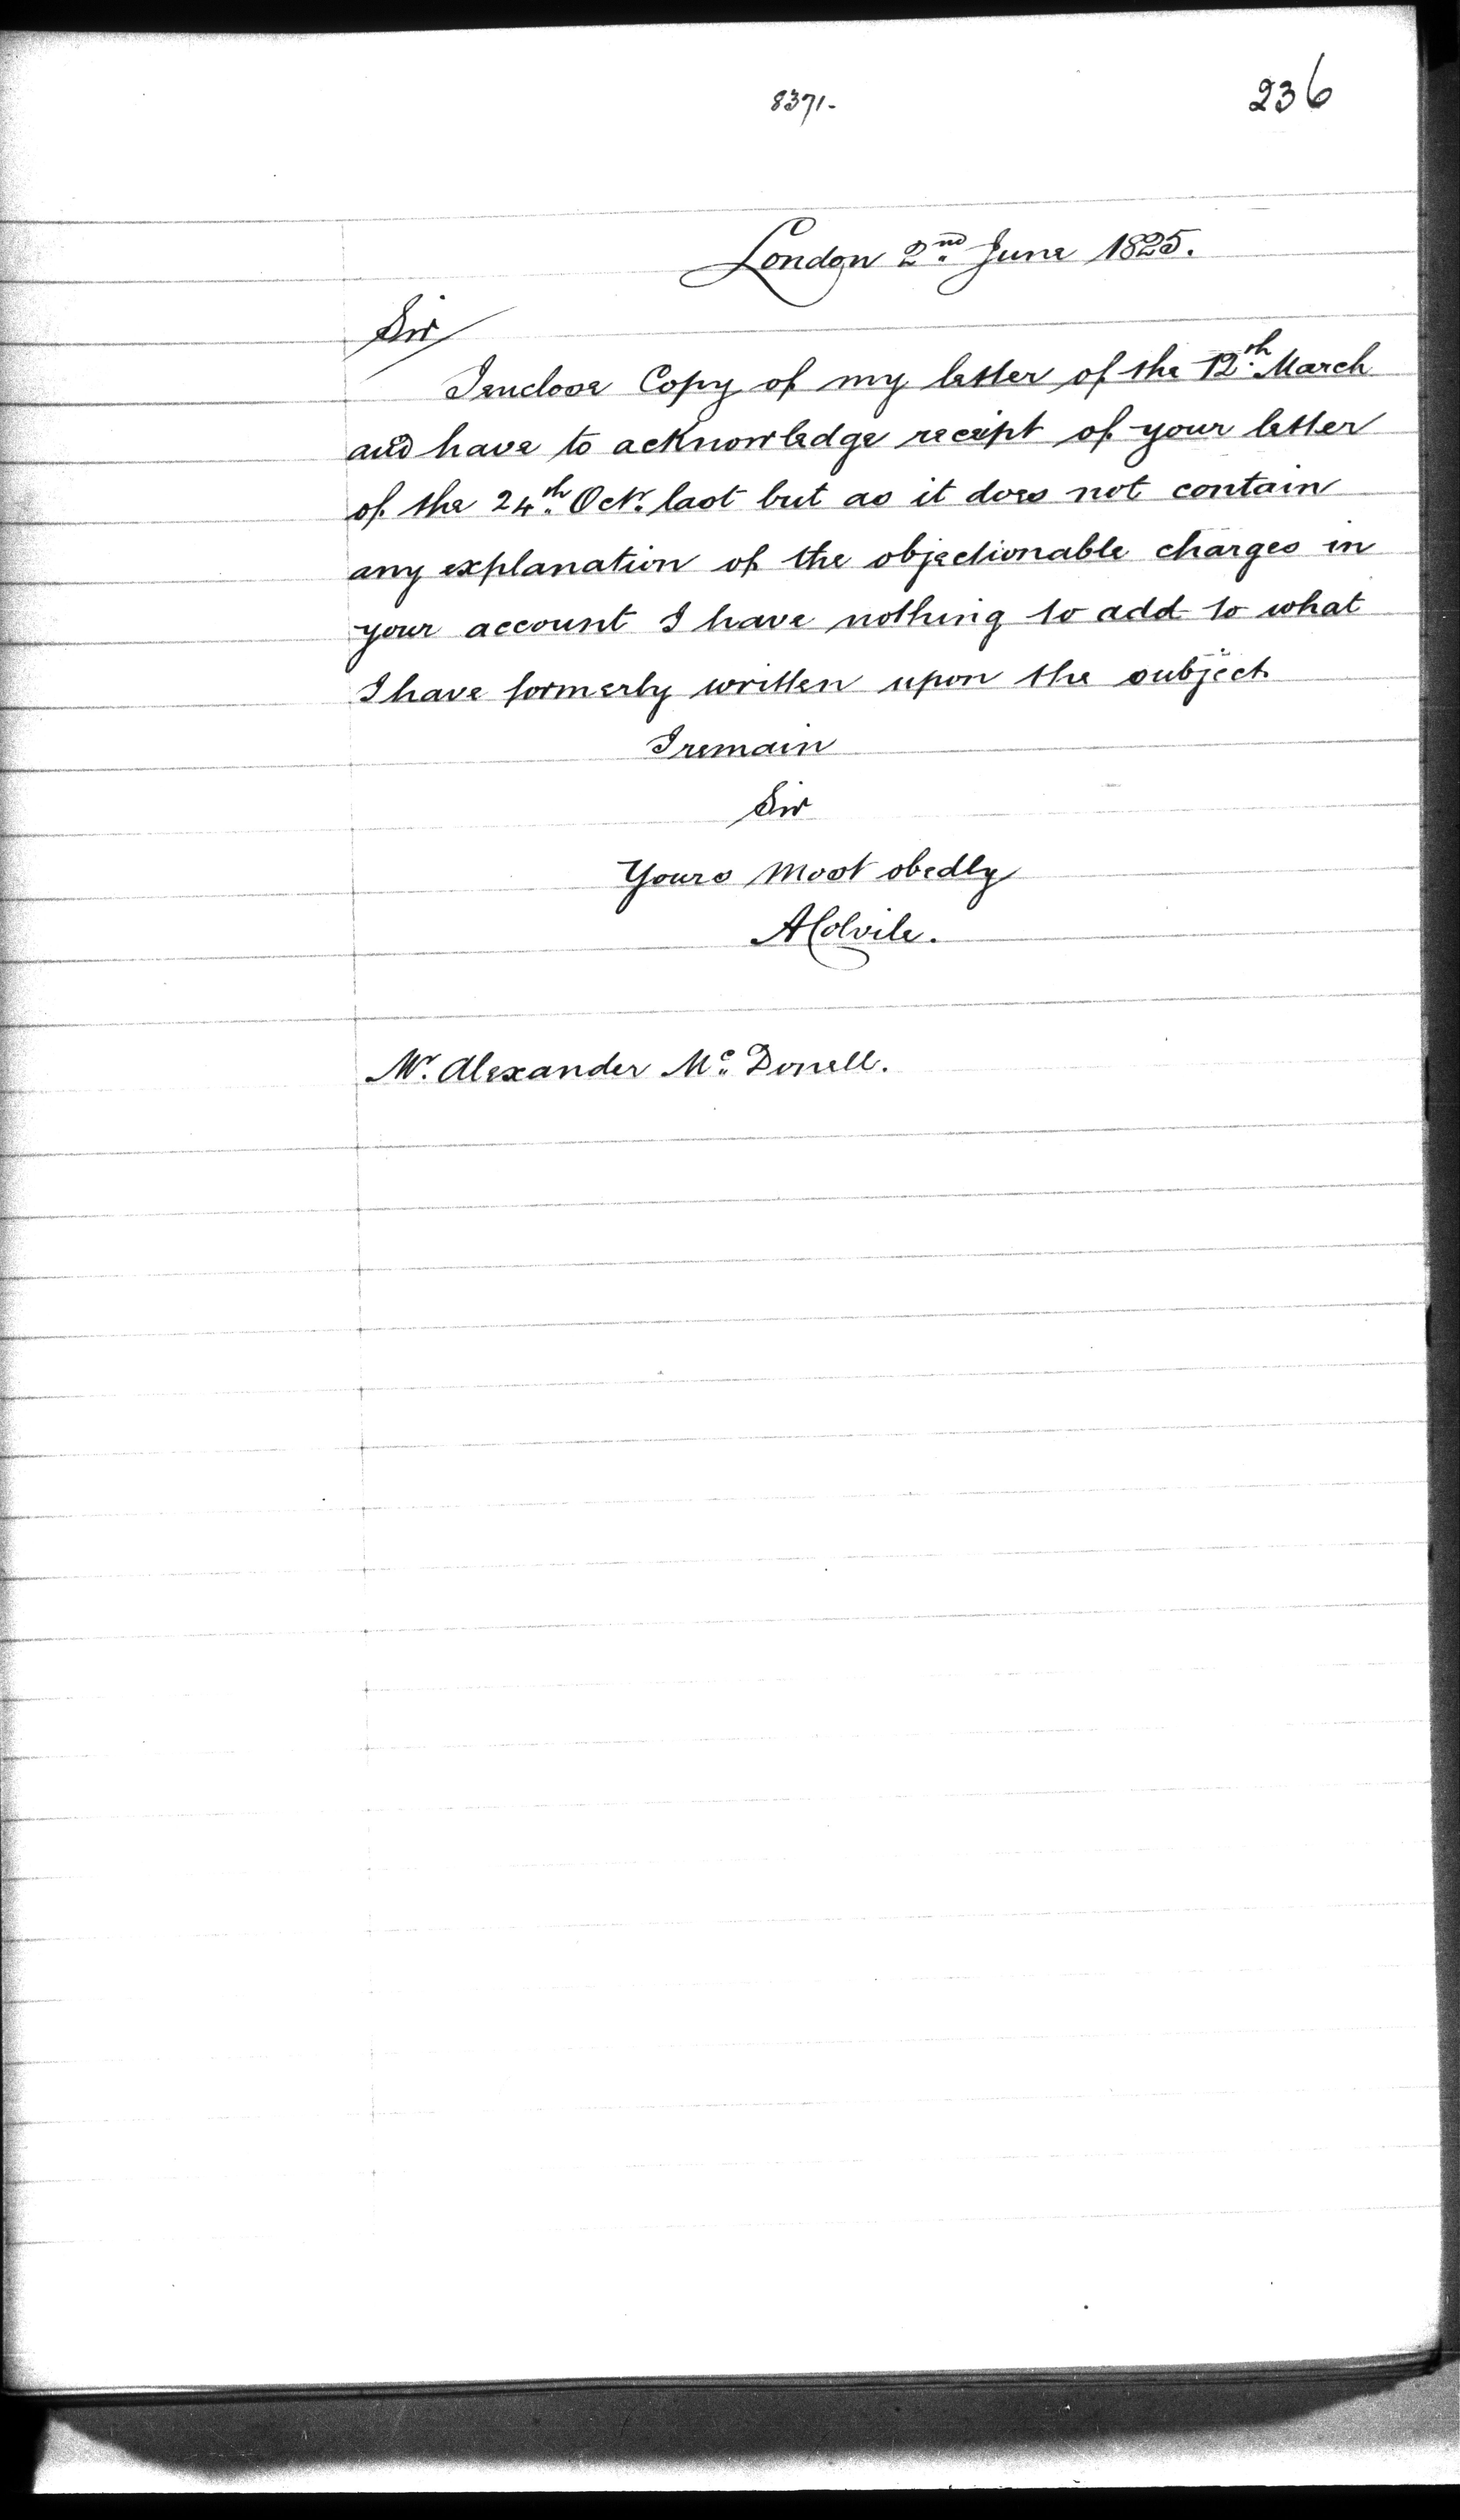 8371-
236
London 2nd June 1825.
Sir/
I enclose Copy of my letter of the 12th March
and have to acknowledge receipt of your letter
of the 24th Octr. last but as it does not contain
any explanation of the objectionable charges in
your account I have nothing to add to what
I have formerly written upon the subject
I remain
Sir
Yours most obedly
A Colvile.
Mr. Alexander Mc. Donell.